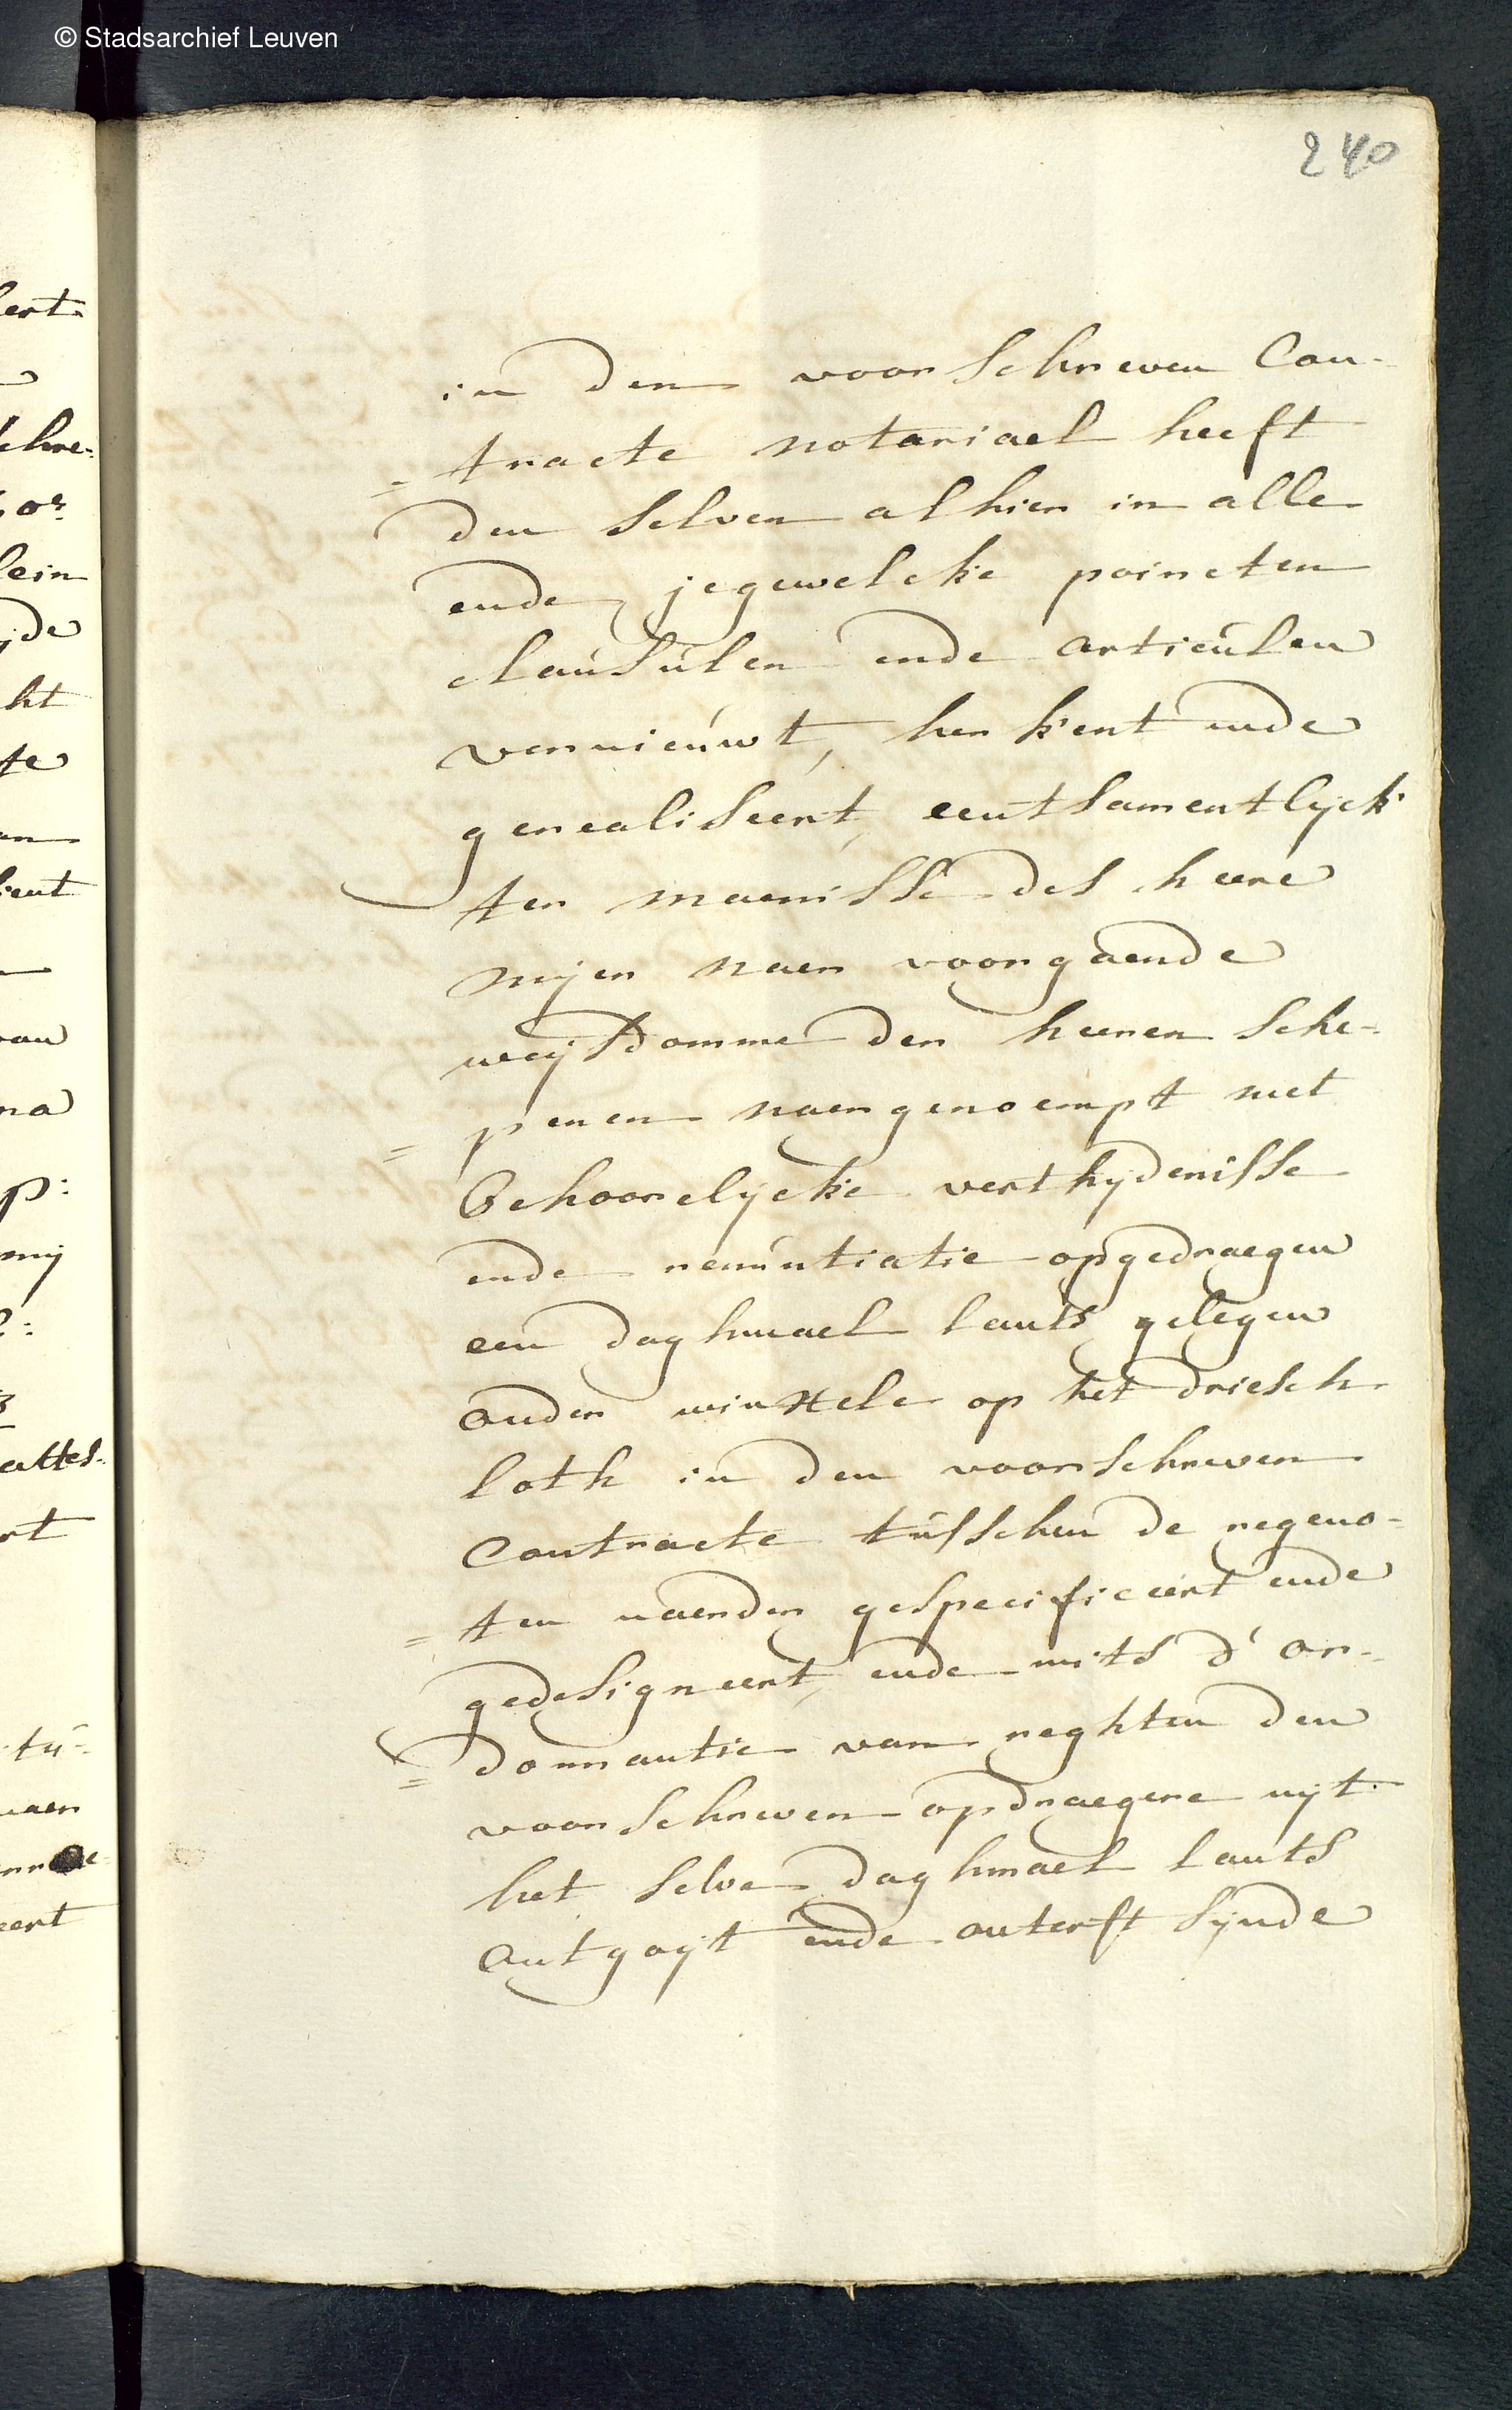 © Stadsarchief Leuven
240
in den voorschreven Con-
= tracte notariael heeft
den selven alhier in alle
ende jegewelcke poincten
clausulen ende articulen
vernieuwt, herkent ende
gerealiseert, eentsamentlijck
ter maenisse des heere
mijer naer voorgaende
weijsdomme der heeren sche-
= penen naergenoempt met
behoorelijcke verthijdenisse
ende renuntiatie opgedraegen
een daghmael lants gelegen
onder winxele op het driesch
loth in den voorschreven
contracte tusschen de regeno-
= ten naerder gespecificeert ende
gedesigneert, ende mits d'or-
= donnantie van reghten den
voorschreven opdraegere uijt
het selve daghmael lants
ontgoijt ende onterft sijnde